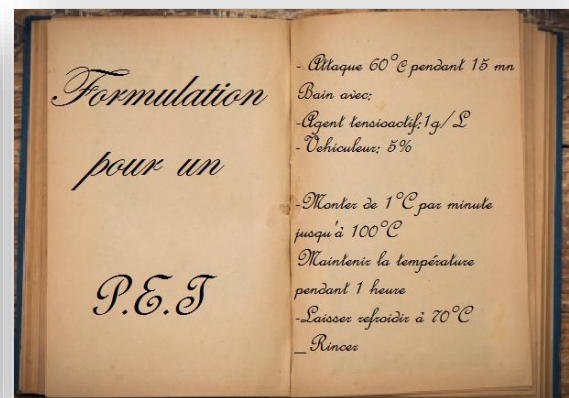 Formulation
pour un
P.E.T
- Attaque 60°C pendant 15 mn
Bain avec:
-Agent tensioactif:1g/L
- Vehiculeur: 5%
-Monter de 1°C par minute
jusqu'à 100°C
Maintenir la température
pendant 1 heure
-Laisser refroidir à 70°C
_ Rincer